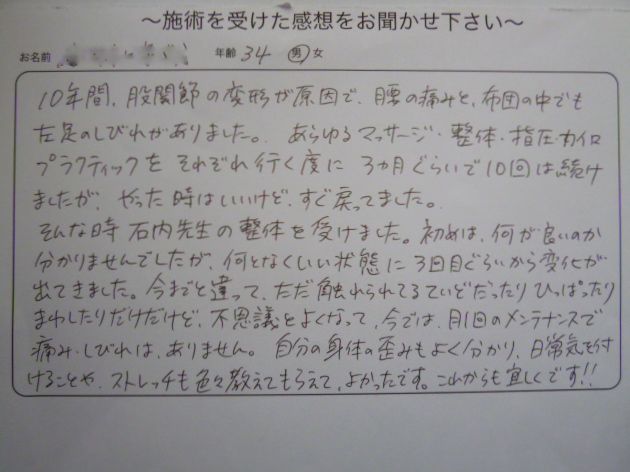 ～施術を受けた感想をお聞かせ下さい～
お名前 年齢 34 男 女
10年間、股関節の変形が原因で、腰の痛みと、布団の中でも
左足のしびれがありました。あらゆるマッサージ・整体・指圧・カイロ
プラクティックをそれぞれ行く度に3ヵ月ぐらいで10回は続け
ましたが、やった時はいいけど、すぐ戻ってました。
そんな時石内先生の整体を受けました。初めは、何が良いのか
分かりませんでしたが、何となくいい状態に3回目ぐらいから変化が
出てきました。今までと違って、ただ触れられてるていどだったりひっぱったり
まわしたりだけだけど、不思議とよくなって、今では、月1回のメンテナンスで
痛み・しびれは、ありません。自分の身体の歪みもよく分かり、日常気を付
けることや、ストレッチも色々教えてもらえて、よかったです。これからも宜しくです!!